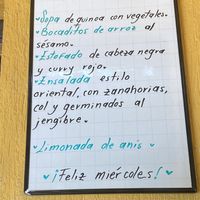 •Sopa de quinoa con vegetales.
•Bocaditos de arroz al
sésamo.
•Estofado de cabeza negra
y curry rojo.
•Ensalada estilo
oriental, con zanahorias,
col y germinados al
jengibre.
•Limonada de anís •
♥ ¡Feliz miércoles! ♥